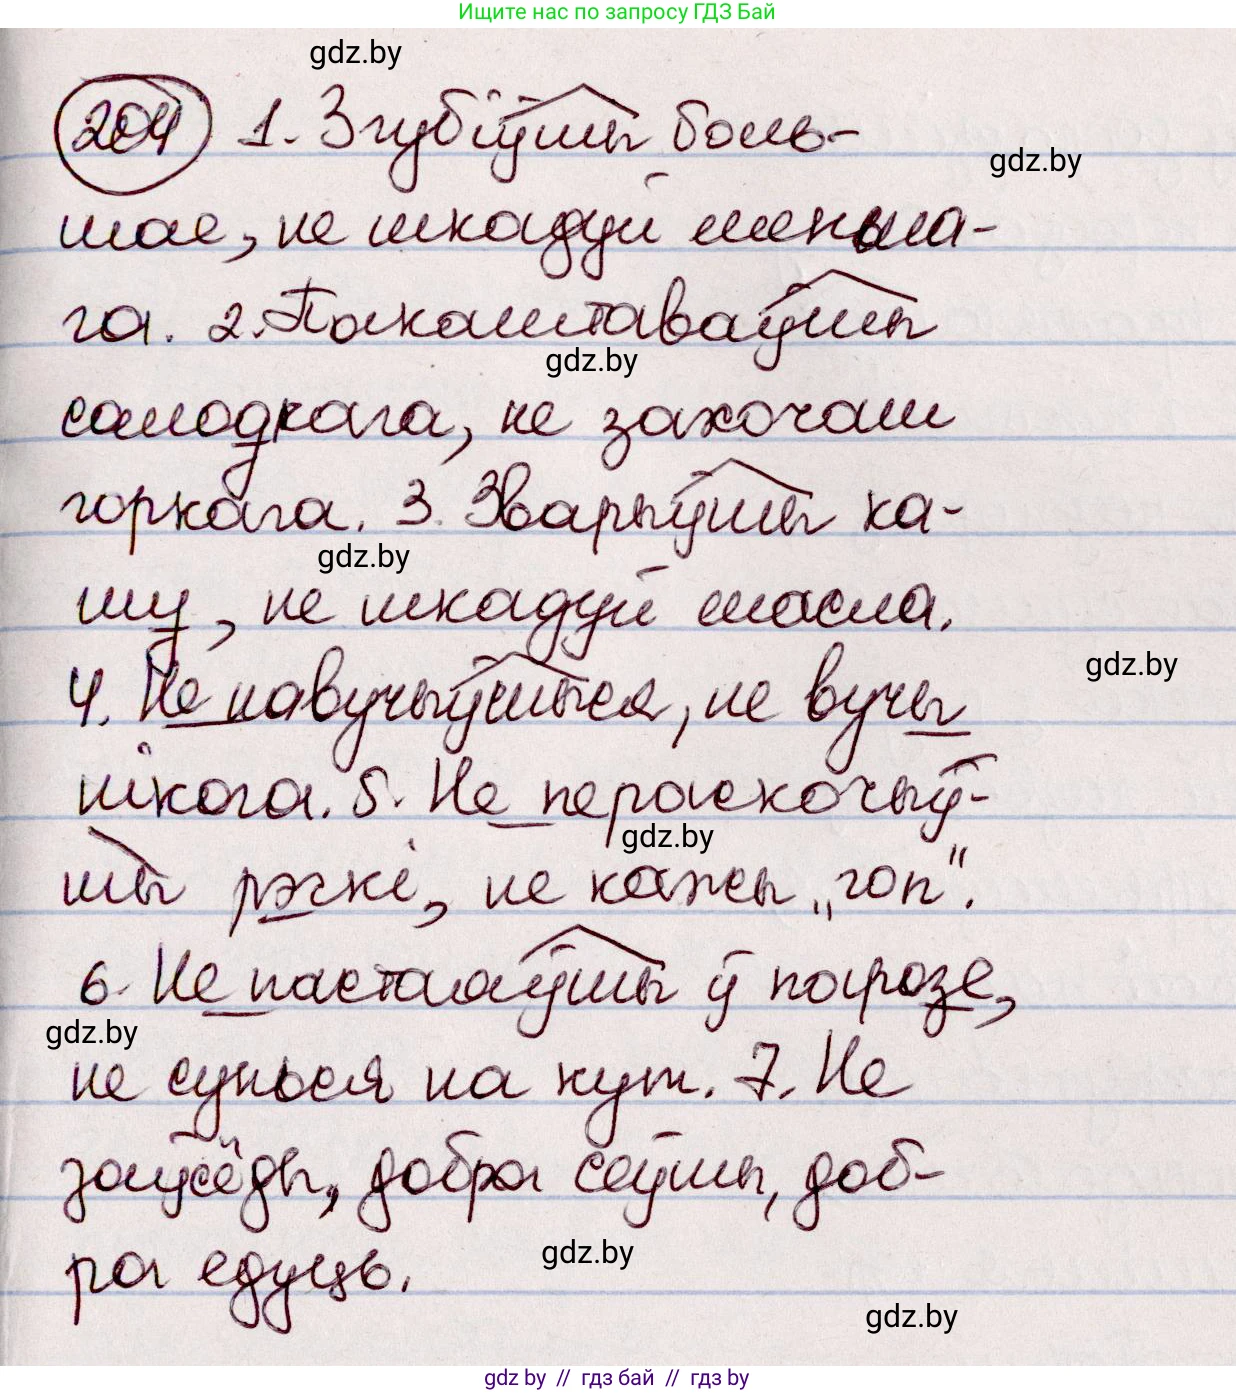 Ищите нас по запросу ГДЗ Бай
gdz.by
204 1. Згубіўшы боль-
gdz.by
шае, не шкадуй менша-
га. 2. Пакаштаваўшы
gdz.by
салодкага, не захочаш
горкага. 3. Зварыўшы ка-
gdz.by
шу, не шкадуй масла.
gdz.by
4. Не навучыўшыся, не вучы
нікога. 5. Не пераскочыў-
gdz.by
шы рэчкі, не кажы „гоп".
6. Не пастаяўшы ў парозе,
gdz.by
не сунься на кут. 7. Не
заўсёды, добра сеўшы, доб-
gdz.by
ра едуць.
gdz.by
gdz.by // гдз бай // гдз by